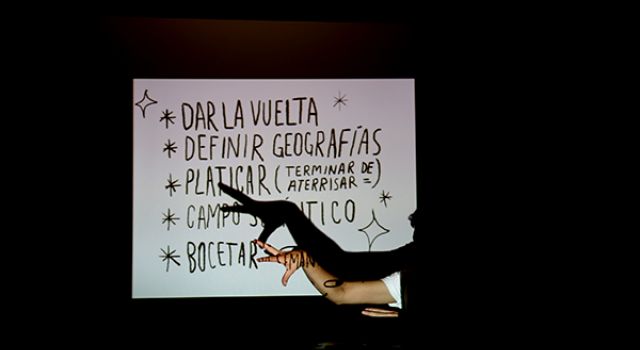 * DAR LA VUELTA
* DEFINIR GEOGRAFÍAS
* PLATICAR (TERMINAR DE
ATERRISAR =)
* CAMPO
* BOCETAR